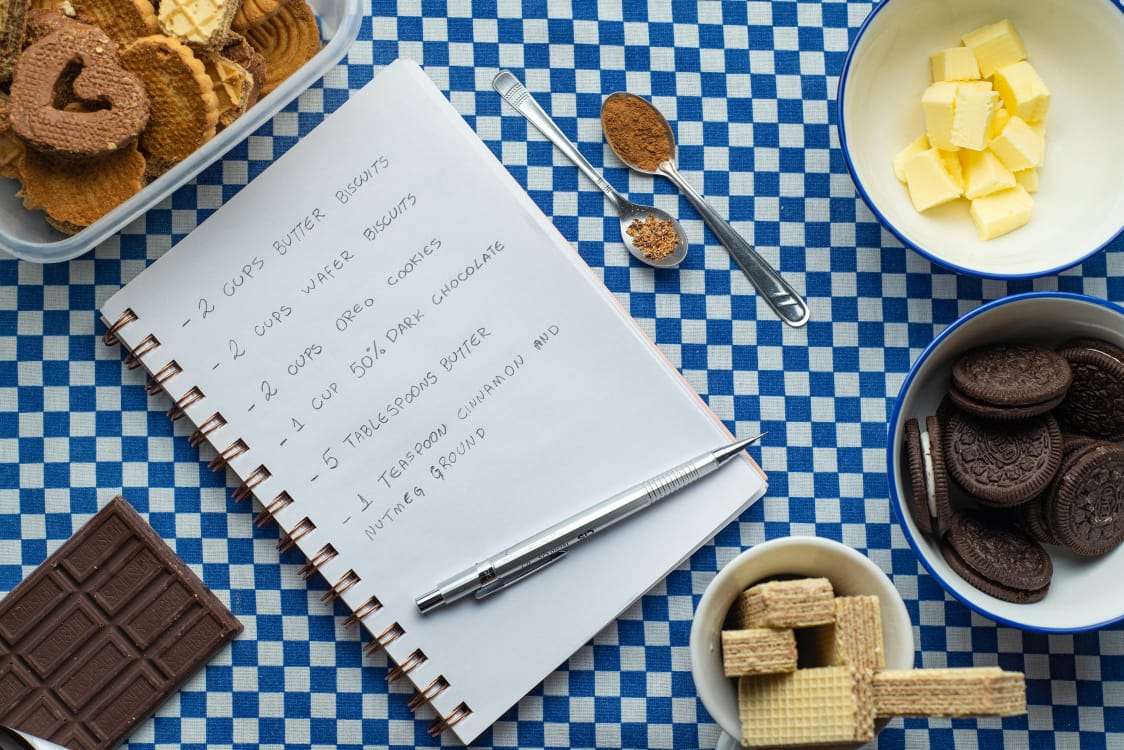 - 2 CUPS BUTTER BISCUITS
- 2 CUPS WAFER BISCUITS
- 2 CUPS OREO COOKIES
- 1 CUP 50% DARK CHOCOLATE
- 5 TABLESPOONS BUTTER
- 1 TEASPOON CINNAMON AND
NUTMEG GROUND